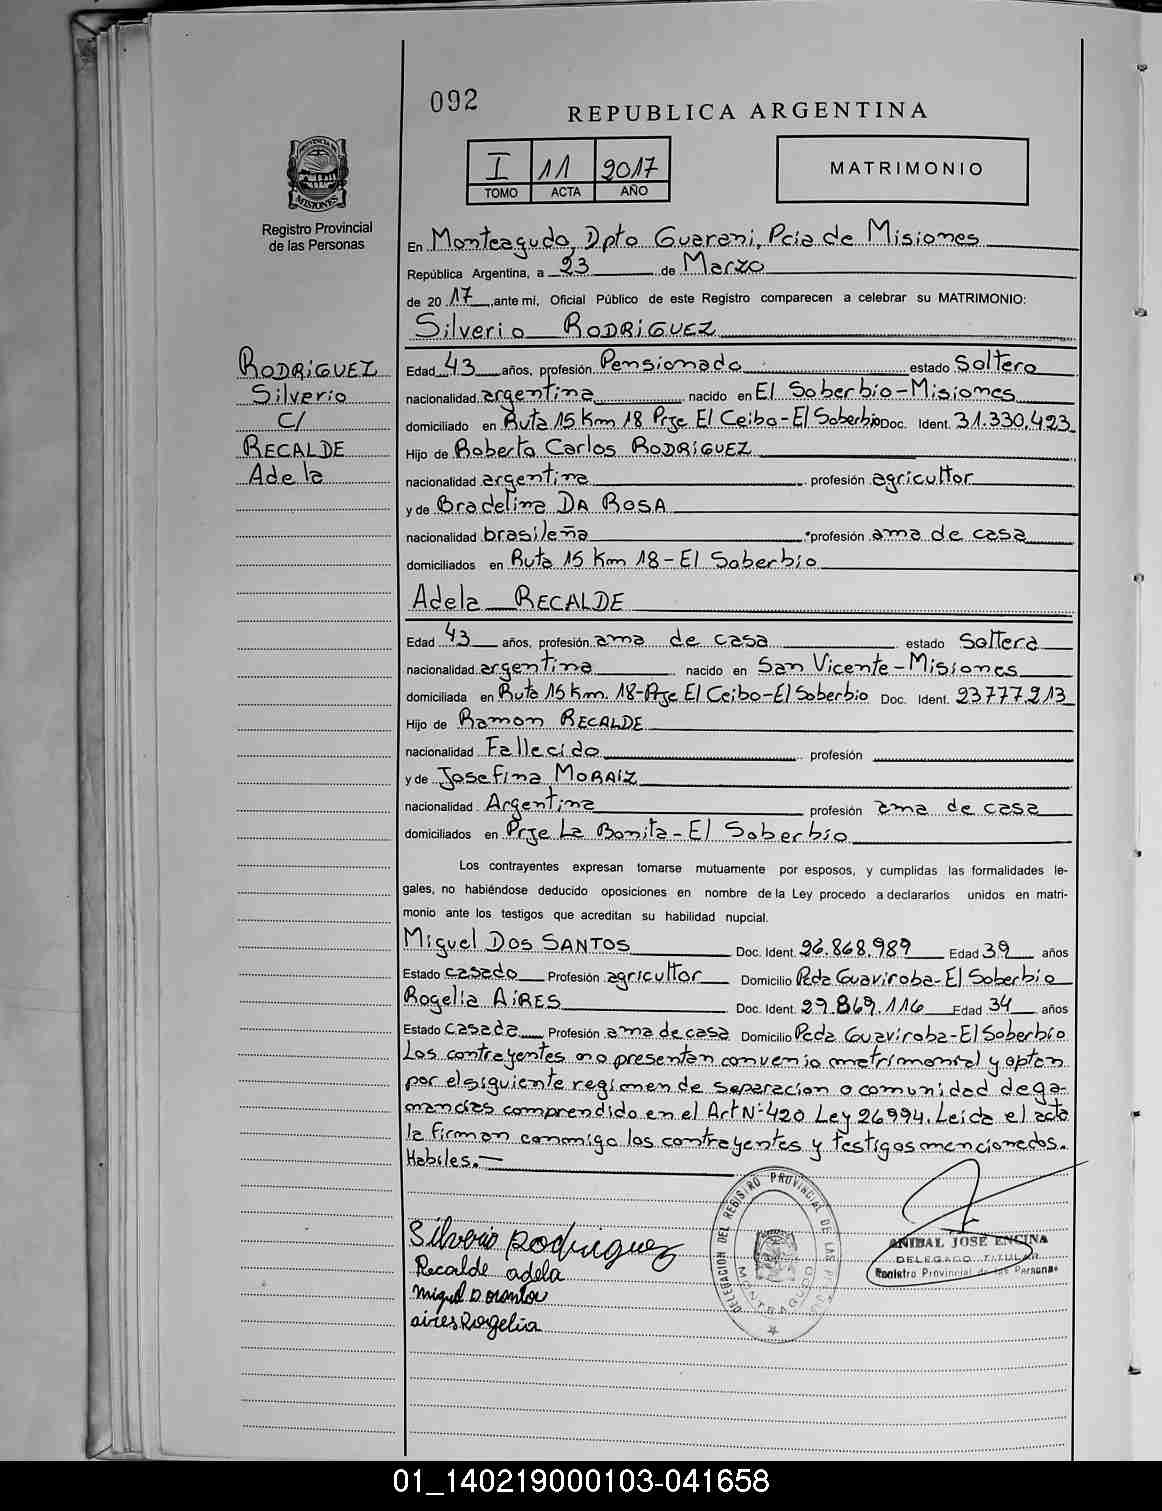 092
REPUBLICA ARGENTINA
I 11 2017
TOMO ACTA AÑO
MATRIMONIO
PROVINCIA DE
MISIONES
Registro Provincial
de las Personas
En Monteagudo, Dpto Guarani, Pcia de Misiones
República Argentina, a 23 de Marzo
de 20 17 ,ante mi, Oficial Público de este Registro comparecen a celebrar su MATRIMONIO:
Silverio RODRIGUEZ
RODRIGUEZ
Silverio
C/
RECALDE
Adela
Edad 43 años, profesión Pensionado estado Soltero
nacionalidad argentina nacido en El Soberbio-Misiones
domiciliado en Ruta 15 Km 18 Prje El Ceibo-El Soberbio Doc. Ident. 31.330.423
Hijo de Roberto Carlos RODRIGUEZ
nacionalidad argentina profesión agricultor
y de Bradelina DA ROSA
nacionalidad brasileña profesión ama de casa
domiciliados en Ruta 15 Km 18-El Soberbio
Adela RECALDE
Edad 43 años, profesión ama de casa estado Soltera
nacionalidad argentina nacido en San Vicente-Misiones
domiciliada en Ruta 15 Km. 18-Prje El Ceibo-El Soberbio Doc. Ident. 23777.213
Hijo de Ramon RECALDE
nacionalidad Fallecido profesión
y de Josefina MORAIZ
nacionalidad Argentina profesión ama de casa
domiciliados en Prje La Bonita-El Soberbio
Los contrayentes expresan tomarse mutuamente por esposos, y cumplidas las formalidades le-
gales, no habiéndose deducido oposiciones en nombre de la Ley procedo a declararlos unidos en matri-
monio ante los testigos que acreditan su habilidad nupcial.
Miguel DOS SANTOS Doc. Ident. 26.868.989 Edad 39 años
Estado casado Profesión agricultor Domicilio Pcda Guaviroba-El Soberbio
Rogelia AIRES Doc. Ident. 29.869.116 Edad 34 años
Estado casada Profesión ama de casa Domicilio Pcda Guaviroba-El Soberbio
Los contrayentes no presentan convenio matrimonial y optan
por el siguiente regimen de separacion o comunidad de ga-
nancias comprendido en el Art Nº 420 Ley 26994. Leida el acta
la firman conmigo los contrayentes y testigos mencionados.
Habiles.-
DELEGACION DEL REGISTRO PROVINCIAL DE LAS
MONTEAGUDO
ANIBAL JOSE ENCINA
DELEGADO TITULAR
Registro Provincial de las Personas
Silverio Rodriguez
Recalde adela
miguel D
aires Rogelia
01_140219000103-041658